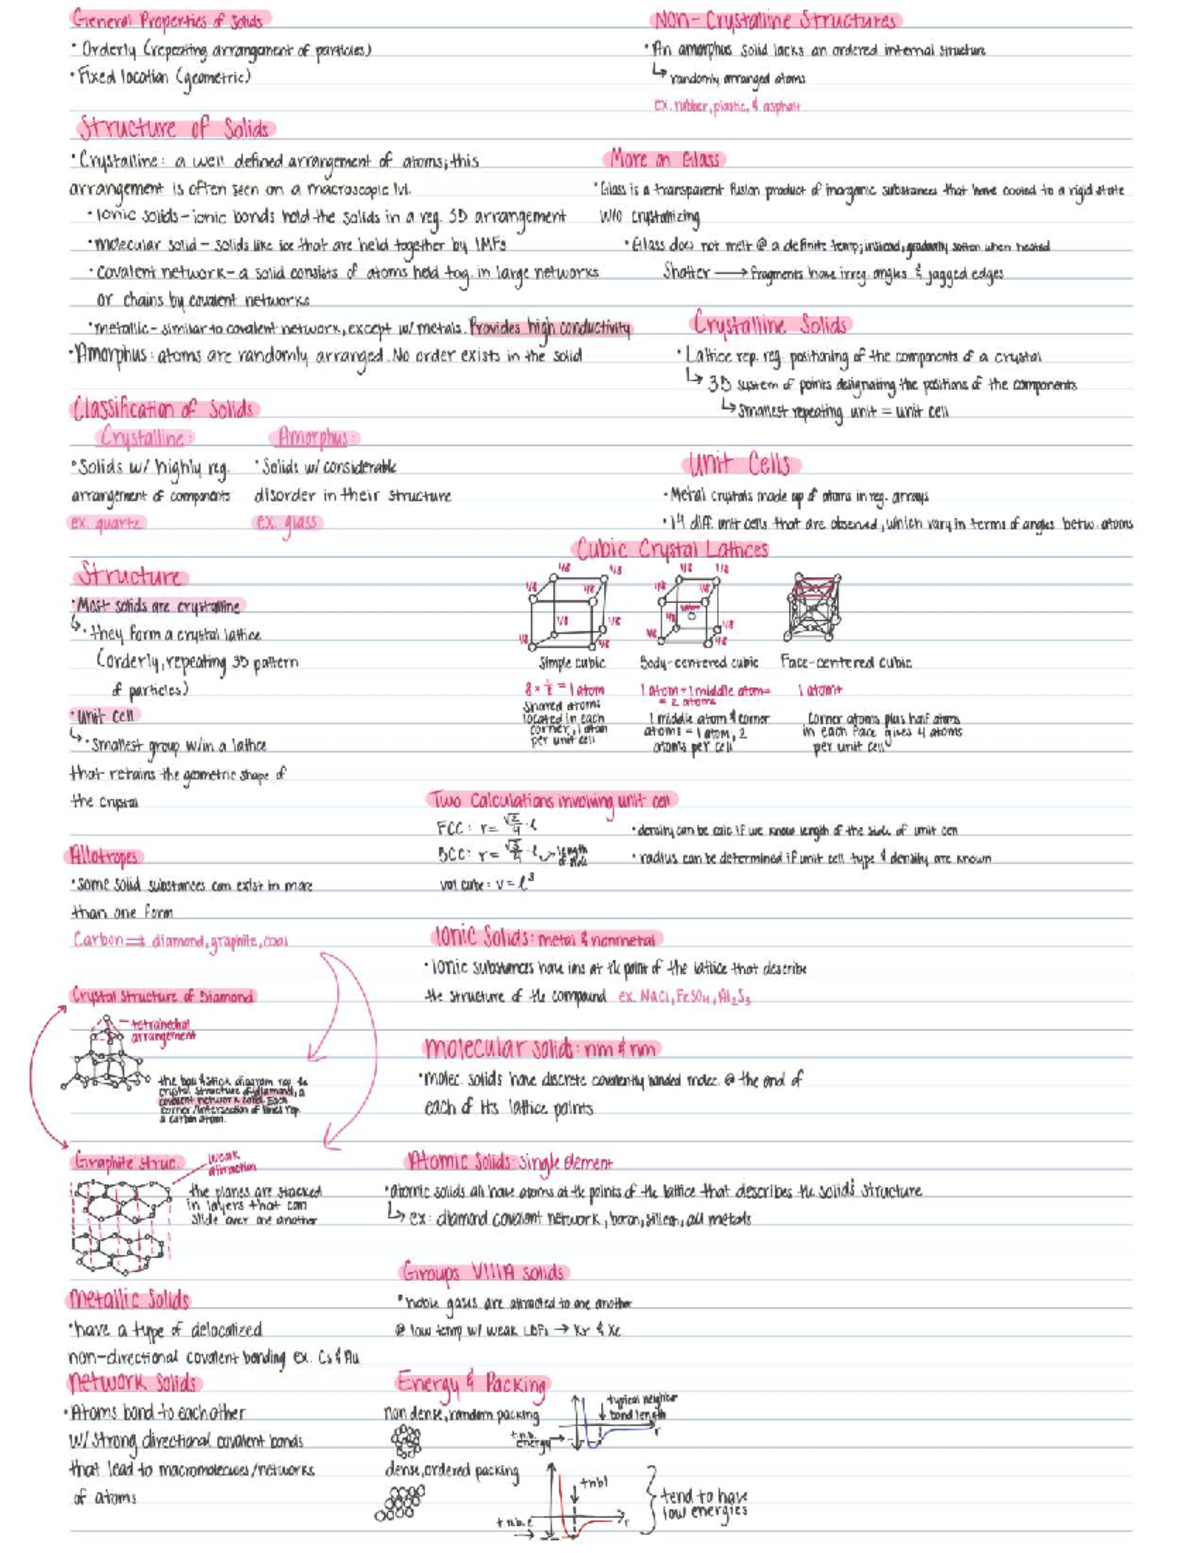 General Properties of Solids
• Orderly (repeating arrangement of particles)
• Fixed location (geometric)
Structure of Solids
• Crystalline: a well defined arrangement of atoms; this
arrangement is often seen on a macroscopic lvl.
• Ionic solids – ionic bonds hold the solids in a reg. 3D arrangement
• molecular solid – solids like ice that are held together by IMFs
• covalent network – a solid consists of atoms held tog. in large networks
or chains by covalent networks
• metallic – similar to covalent network, except w/ metals. Provides high conductivity
• Amorphus: atoms are randomly arranged. No order exists in the solid
Classification of Solids
Crystalline:
• Solids w/ highly reg.
arrangement of components
ex. quartz
Amorphus:
• Solids w/ considerable
disorder in their structure
ex. glass
Structure
• Most solids are crystalline
↳ • they form a crystal lattice
(orderly, repeating 3D pattern
of particles)
• unit cell
↳ • smallest group w/in a lattice
that retains the geometric shape of
the crystal
Allotropes
• some solid substances can exist in more
than one form
Carbon ⇒ diamond, graphite, coal
Crystal Structure of Diamond
tetrahedral
arrangement
the ball & stick diagram rep. the
crystal structure of diamond, a
covalent network solid. Each
corner/intersection of lines rep.
a carbon atom.
Graphite struc.
weak
attraction
the planes are stacked
in layers that can
slide over one another
Metallic Solids
• have a type of delocalized
non-directional covalent bonding ex. Cs & Au
Network Solids
• Atoms bond to each other
w/ strong directional covalent bonds
that lead to macromolecules/networks
of atoms
Non-Crystalline Structures
• An amorphus solid lacks an ordered internal structure
↳ randomly arranged atoms
ex. rubber, plastic, & asphalt
More on Glass
• Glass is a transparent fusion product of inorganic substances that have cooled to a rigid state
w/o crystalizing
• Glass does not melt @ a definite temp; instead, gradually soften when heated
Shatter → fragments have irreg. angles & jagged edges
Crystalline Solids
• Lattice rep. reg. positioning of the components of a crystal
↳ 3D system of points designating the positions of the components
↳ smallest repeating unit = unit cell
Unit Cells
• Metal crystals made up of atoms in reg. arrays
• 14 diff. unit cells that are observed, which vary in terms of angles betw. atoms
Cubic Crystal Lattices
1/8 1/8
1/8 1/8
1/8 1/8
1/8 1/8
1/8 1/8
1/8 1/8
1/8 1/8
1/8
Simple cubic
8 × 1/8 = 1 atom
shared atoms
located in each
corner, 1 atom
per unit cell
Body-centered cubic
1 atom + 1 middle atom =
= 2 atoms
1 middle atom & corner
atoms = 1 atom, 2
atoms per cell
Face-centered cubic
1 atom +
corner atoms plus half atoms
in each face gives 4 atoms
per unit cell
Two Calculations involving unit cell
FCC: r = √2/4 · l
BCC: r = √3/4 · l → length of side
vol cube: v = l³
• density can be calc if we know length of the side of unit cell
• radius can be determined if unit cell type & density are known
Ionic Solids: metal & nonmetal
• Ionic substances have ions at the point of the lattice that describe
the structure of the compound ex. NaCl, FeSO₄, Al₂S₃
molecular solids: nm & nm
• molec. solids have discrete covalently bonded molec. @ the end of
each of its lattice points
Atomic Solids: single element
• atomic solids all have atoms at the points of the lattice that describes the solid's structure
↳ ex: diamond covalent network, boron, silicon, all metals
Groups VIIIA solids
• noble gases are attracted to one another
@ low temp w/ weak LDFs → Kr & Xe
Energy & Packing
non dense, random packing
typical neighbor
bond length
t.n.b.
energy
r
dense, ordered packing
t nbl
t n.b.e
r
tend to have
low energies